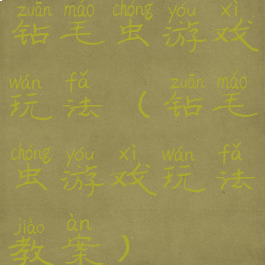 zuān máo chóng yóu xì
钻毛虫游戏
wán fǎ zuān máo
玩法（钻毛
chóng yóu xì wán fǎ
虫游戏玩法
jiào àn
教案）